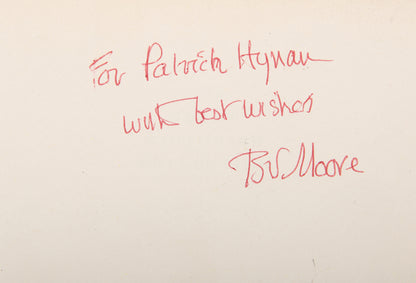 For Patrick Hynan
with best wishes
BS Moore